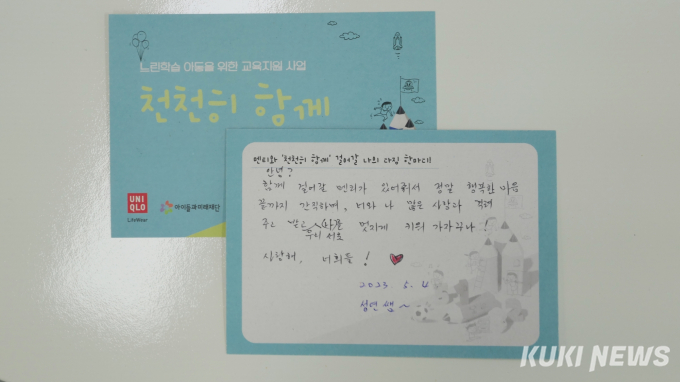 느린학습 아동을 위한 교육지원 사업
천천히 함께
UNI
QLO
LifeWear
아이들과미래재단
멘티와 '천천히 함께' 걸어갈 나의 다짐 한마디!
안녕?
함께 걸어갈 멘티가 있어줘서 정말 행복한 마음
끝까지 간직하며, 너와 나 많은 사랑과 격려
주고 받고 멋지게 키워 가자꾸나!
우리 서로
사랑해, 너희들!
2023 5. 4
쌤~
KUKI NEWS